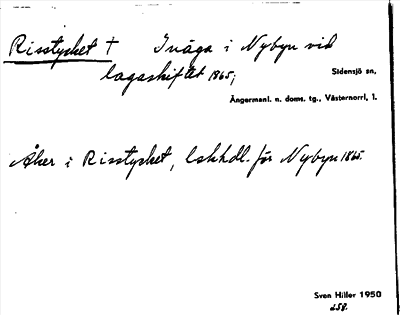 Risstycket † Inäga i Nybyn vid
lagaskiftet 1865;
Sidensjö sn,
Ångermanl. n. doms. tg., Västernorrl, l.
Åker i Risstycket, lskhdl. för Nybyn 1865.
Sven Hiller 1950